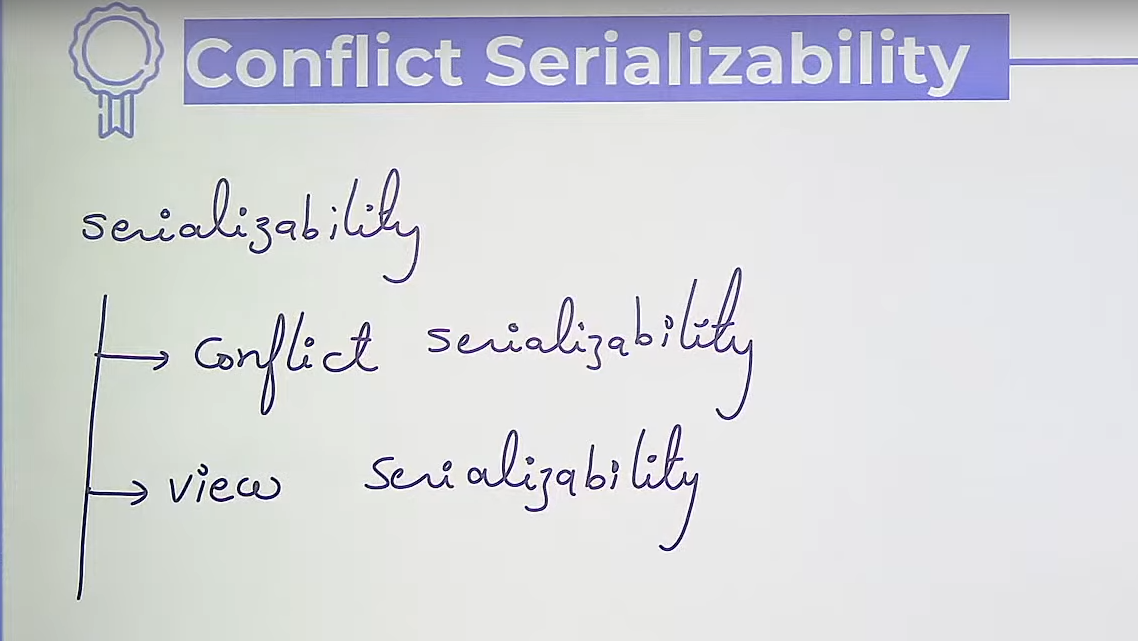 Conflict Serializability
serializability
conflict serializability
view serializability